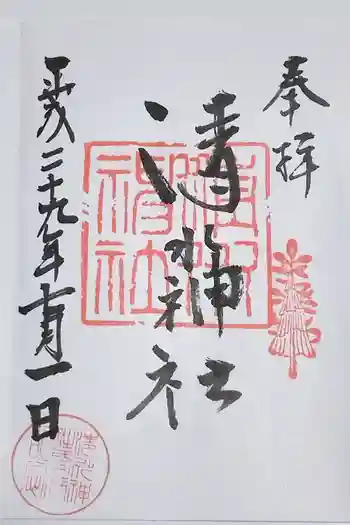 奉拝
清神社
平成二十九年十月一日